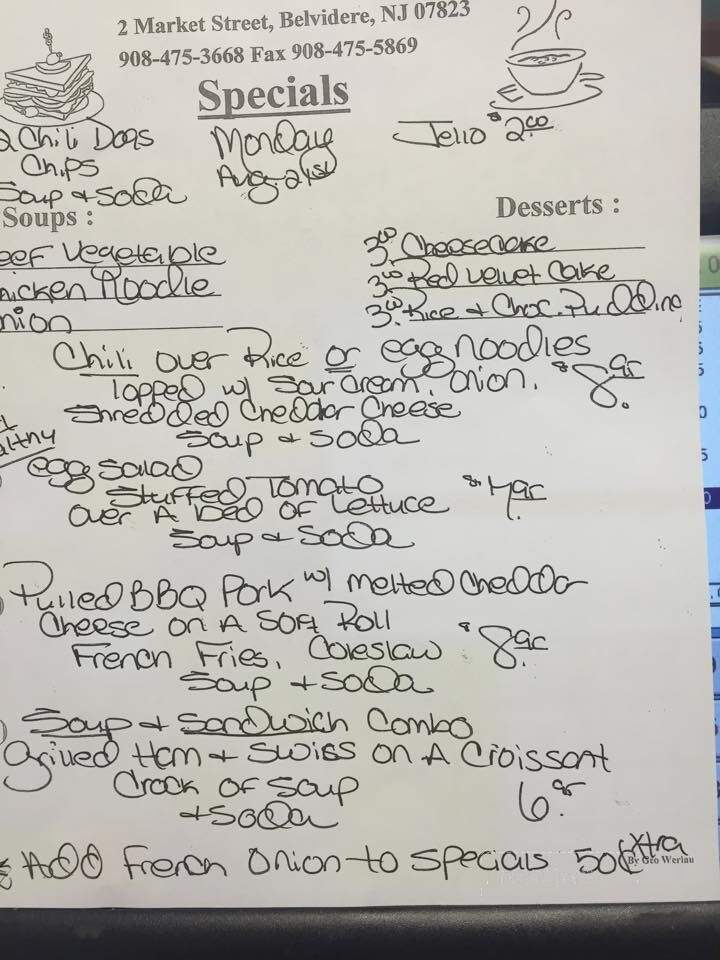 2 Market Street, Belvidere, NJ 07823
908-475-3668 Fax 908-475-5869
Specials
2 Chili Dogs
Chips
Soup + Soda
Monday
Aug. 21st
Jello $2.00
Soups :
eef Vegetable
icken Noodle
nion
Desserts :
3.00 Cheesecake
3.00 Red Velvet Cake
3.00 Rice + Choc. Pudding
Chili over Rice or egg noodles
Topped w/ Sour Cream, Onion, $8.95
Shredded Cheddar Cheese
Soup + Soda
althy
egg Salad
Stuffed Tomato $7.95
over A Bed of Lettuce
Soup + Soda
Pulled BBQ Pork w/ melted Cheddar
Cheese on A Soft Roll
French Fries, Coleslaw $8.95
Soup + Soda
Soup + Sandwich Combo
Grilled Ham + Swiss on A Croissant
Crock of Soup 6.95
+ Soda
Add French Onion to Specials 50¢ Xtra
By Geo Werlau